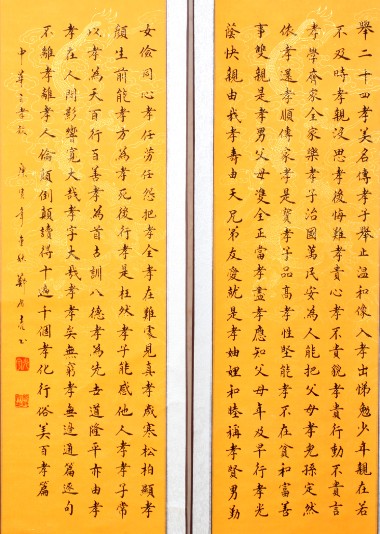 舉二十四孝美名傳孝子舉止溫和像入孝出悌勉少年親在若
不及時孝親沒思孝後悔難孝貴心孝不貴貌孝貴行動不貴言
孝學齊家全家樂孝子治國萬民安為人能把父母孝兒孫定然
依孝還孝順傳家孝是寶孝子品高孝性堅能孝不在貧和富善
事雙親是孝男父母雙全正當孝盡孝應知父母年及早行孝光
蔭快親由我孝壽由天兄弟友愛就是孝妯娌和睦稱孝賢男勤
女儉同心孝任勞任怨把孝全孝在難處見真孝歲寒松柏顯孝
顏生前能孝方為孝死後行孝是枉然孝子能感他人孝孝子常
以孝為天百行百善孝為首古訓八德孝為先世道隆平亦由孝
孝在人間影響寬大哉孝字大哉孝孝矣無窮孝無邊通篇逐句
不離孝離孝人倫顛倒顛讀得十遍十個孝化行俗美百孝篇
中華之孝 庚寅年 書